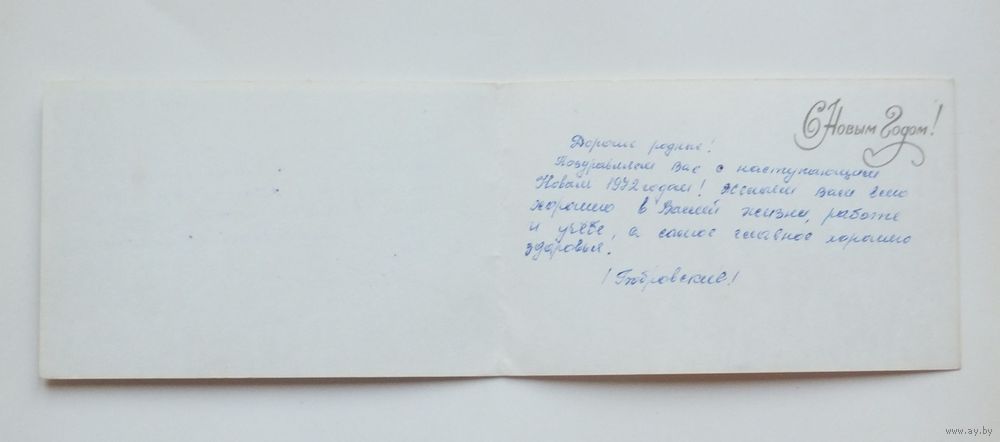 С Новым Годом!
Дорогие родные!
Поздравляем Вас с наступающим
Новым 1972 годом! Желаем Вам всего
хорошего в Вашей жизни, работе
и учебе, а самое главное хорошего
здоровья!
www.ay.by